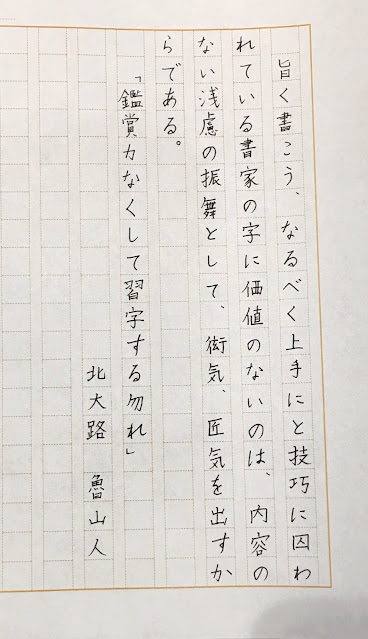 旨く書こう、なるべく上手にと技巧に囚わ
れている書家の字に価値のないのは、内容の
ない浅慮の振舞として、衒気、匠気を出すか
らである。
「鑑賞力なくして習字する勿れ」
北大路 魯山人